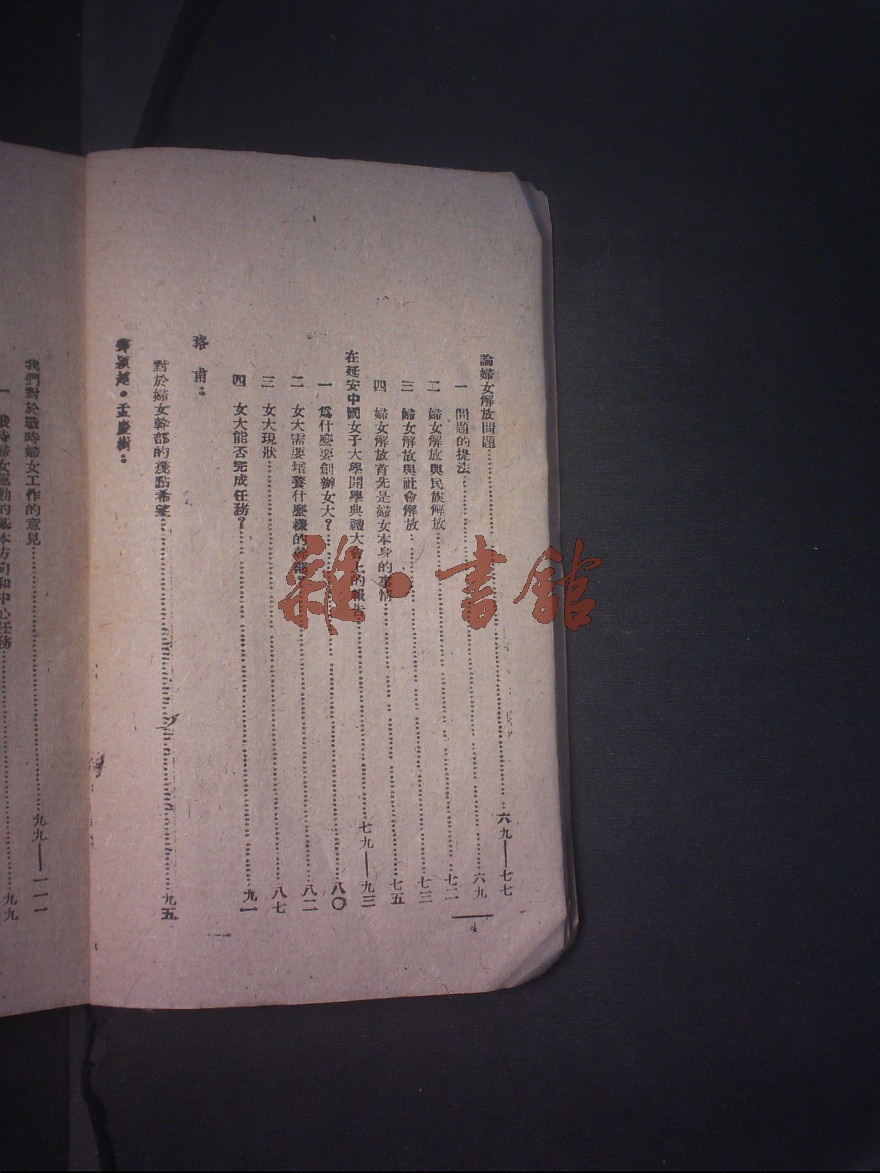 論婦女解放問題……六九——七七
一 問題的提法……六九
二 婦女解放與民族解放……七二
三 婦女解放與社會解放……七三
四 婦女解放首先是婦女本身的事情……七五
在延安中國女子大學開學典禮大會上的報告……七九——九三
一 爲什麼要創辦女大？……八〇
二 女大需要培養什麼樣的幹部？……八二
三 女大現狀……八七
四 女大能否完成任務？……九一
珞甫：
對於婦女幹部的幾點希望……九五
鄧頴超・孟慶樹：
我們對於戰時婦女工作的意見……九九——一一一
一 戰時婦女運動的基本方向和中心任務……九九
4
雜・書館